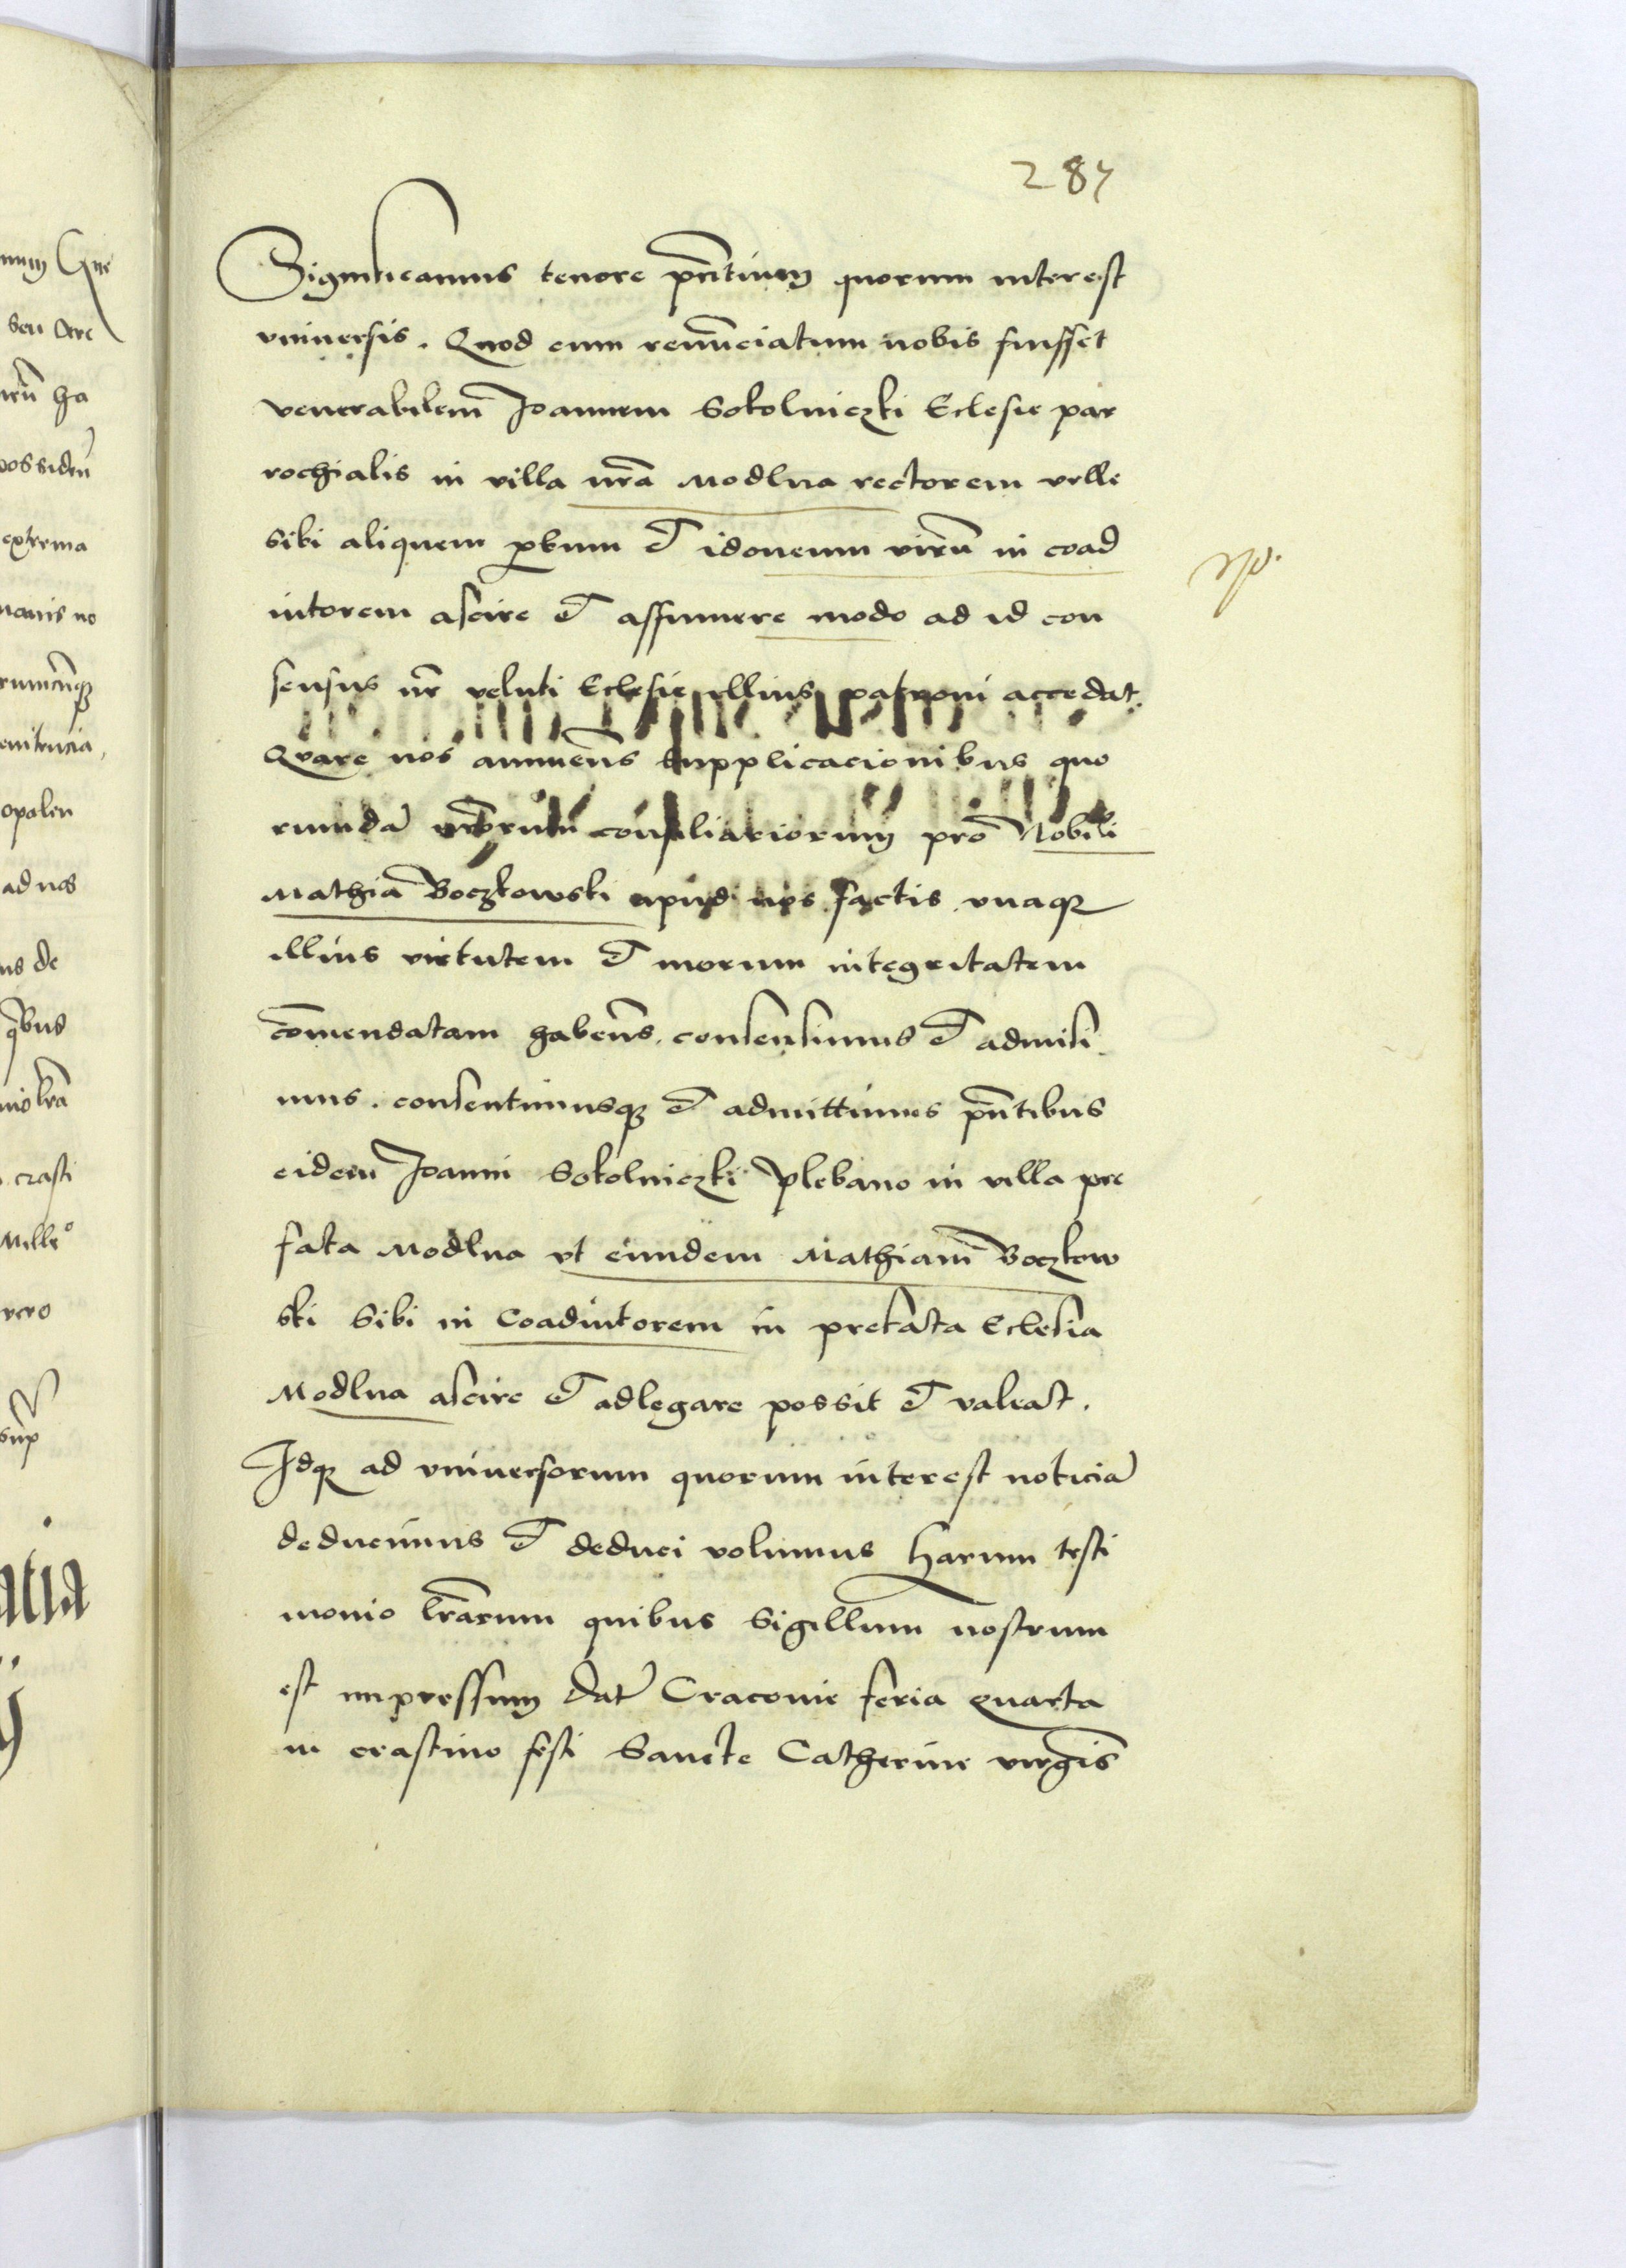 287
Significamus tenore pñtium quorum interest
vniuersis. Quod cum renũciatum nobis fuisset
venerabilem̃ Joannem Sokolniczki Eclesie par
rochialis in villa nr̃a Modlna rectorem velle
sibi aliquem ꝓbum et idoneum virũ in coad
iutorem ascire et assumere modo ad id con
sensus nr̃ veluti Eclesie illius patroni accedat.
Quare nos annuẽns supplicacionibus quo
rumdã nr̃orum consiliariorum pro Nobili
Mathia Boczkowski apud nos factis vnaqꝫ
illius virtutem et morum integritatem
com̃endatam habeñs. consensimus et admisi
mus. consentimusqꝫ et admittimus pñtibus
eidem Joanni Sokolniczki plebano in villa pre
fata Modlna vt eundem Mathiam̃ Boczkow
ski Sibi in Coadiutorem in prefata Eclesia
Modlna ascire et adlegare possit et valeat.
Idqꝫ ad vniuersorum quorum interest noticiã
deducimus et deduci volumus harum testi
monio lr̃arum quibus Sigillum nostrum
est impressum Dat̃ Cracouie feria quarta
in crastino festi Sancte Catherine virgĩs